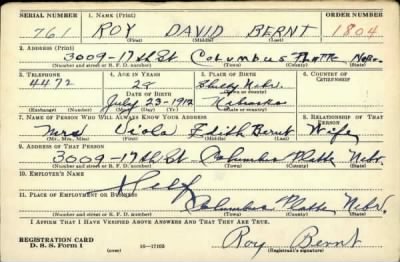 SERIAL NUMBER 1. NAME (Print) ORDER NUMBER
761 ROY DAVID BERNT 1804
(First) (Middle) (Last)
2. ADDRESS (Print)
3009-17th St Columbus Platte Nebr.
(Number and street or R. F. D. number) (Town) (County) (State)
3. TELEPHONE 4. AGE IN YEARS 5. PLACE OF BIRTH 6. COUNTRY OF CITIZENSHIP
4472 28 Shelby Nebr.
DATE OF BIRTH (Town or county)
July 23-1912 Nebraska
(Exchange) (Number) (Mo.) (Day) (Yr.) (State or country)
7. NAME OF PERSON WHO WILL ALWAYS KNOW YOUR ADDRESS 8. RELATIONSHIP OF THAT PERSON
Mrs Viola Edith Bernt Wife
(Mr., Mrs., Miss) (First) (Middle) (Last)
9. ADDRESS OF THAT PERSON
3009-17th St Columbus Platte Nebr.
(Number and street or R. F. D. number) (Town) (County) (State)
10. EMPLOYER'S NAME
Self
11. PLACE OF EMPLOYMENT OR BUSINESS
Columbus Platte Nebr.
(Number and street or R. F. D. number) (Town) (County) (State)
I AFFIRM THAT I HAVE VERIFIED ABOVE ANSWERS AND THAT THEY ARE TRUE.
REGISTRATION CARD
D. S. S. Form 1 (over) 16-17105
Roy Bernt
(Registrant's signature)